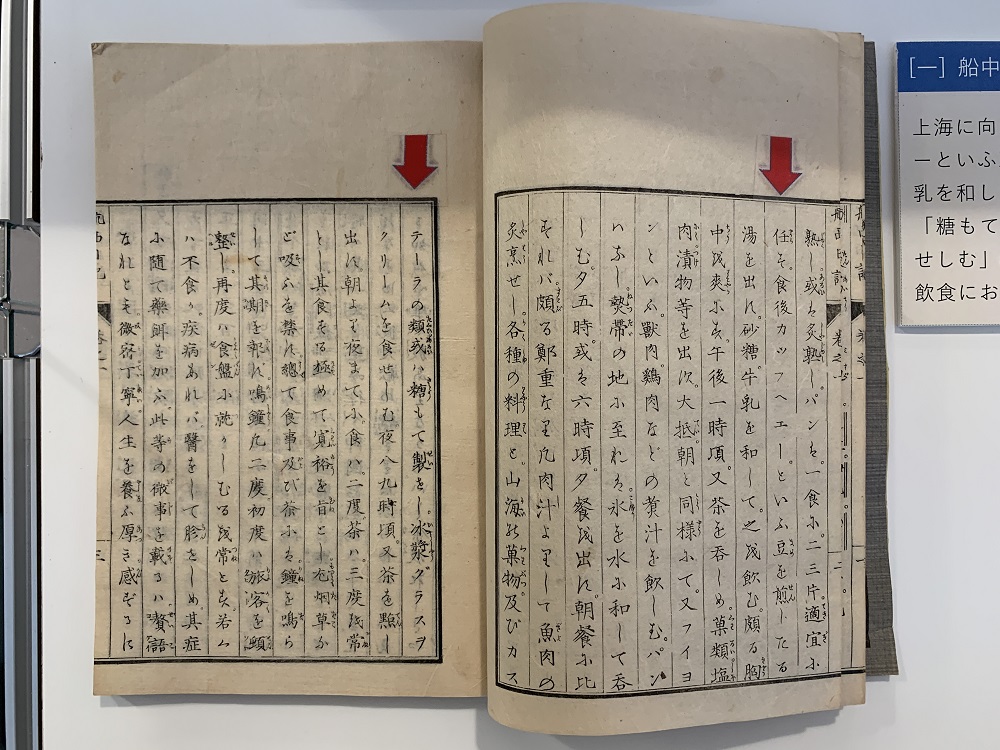 熟し或は炙熟しパンは一食に二三片適宜に
任す食後カッフヘエーといふ豆を煎したる
湯を出す砂糖牛乳を和して之を飲む頗る胸
中を爽にす午後一時頃又茶を呑しめ菓類塩
肉漬物等を出す大抵朝と同様にて又フイヨ
ンといふ獣肉鶏肉などの煮汁を飲しむパン
はなし熱帯の地に至れは氷を水に和して呑
しむ夕五時或は六時頃夕餐を出す朝餐に比
すれバ頗る鄭重なり凡肉汁よりして魚肉の
炙烹せし各種の料理と山海の菓物及びカス
テーラの類或ハ糖もて製せし氷漿グラスヲ
クリームを食せしむ夜八九時頃又茶を點し
出す朝より夜まて小食ハ二度茶ハ三度を常
とし其食する極めて寛裕を旨とし尤烟草な
ど吸ふを禁す總て食事及び茶にも鐘を鳴ら
して其期を報す鳴鐘凡二度初度ハ旅客を
整し再度ハ食盤に就かしむるを常とす若人
ハ不食か疾病あれバ醫をして胗せしめ其症
に随て藥餌を加ふ此等の微事を載るハ贅語
なれとも微密丁寧人生を養ふ厚き感ずるに
三
[一] 船中
上海に向
ーといふ
乳を和し
「糖もて
せしむ」
飲食にお